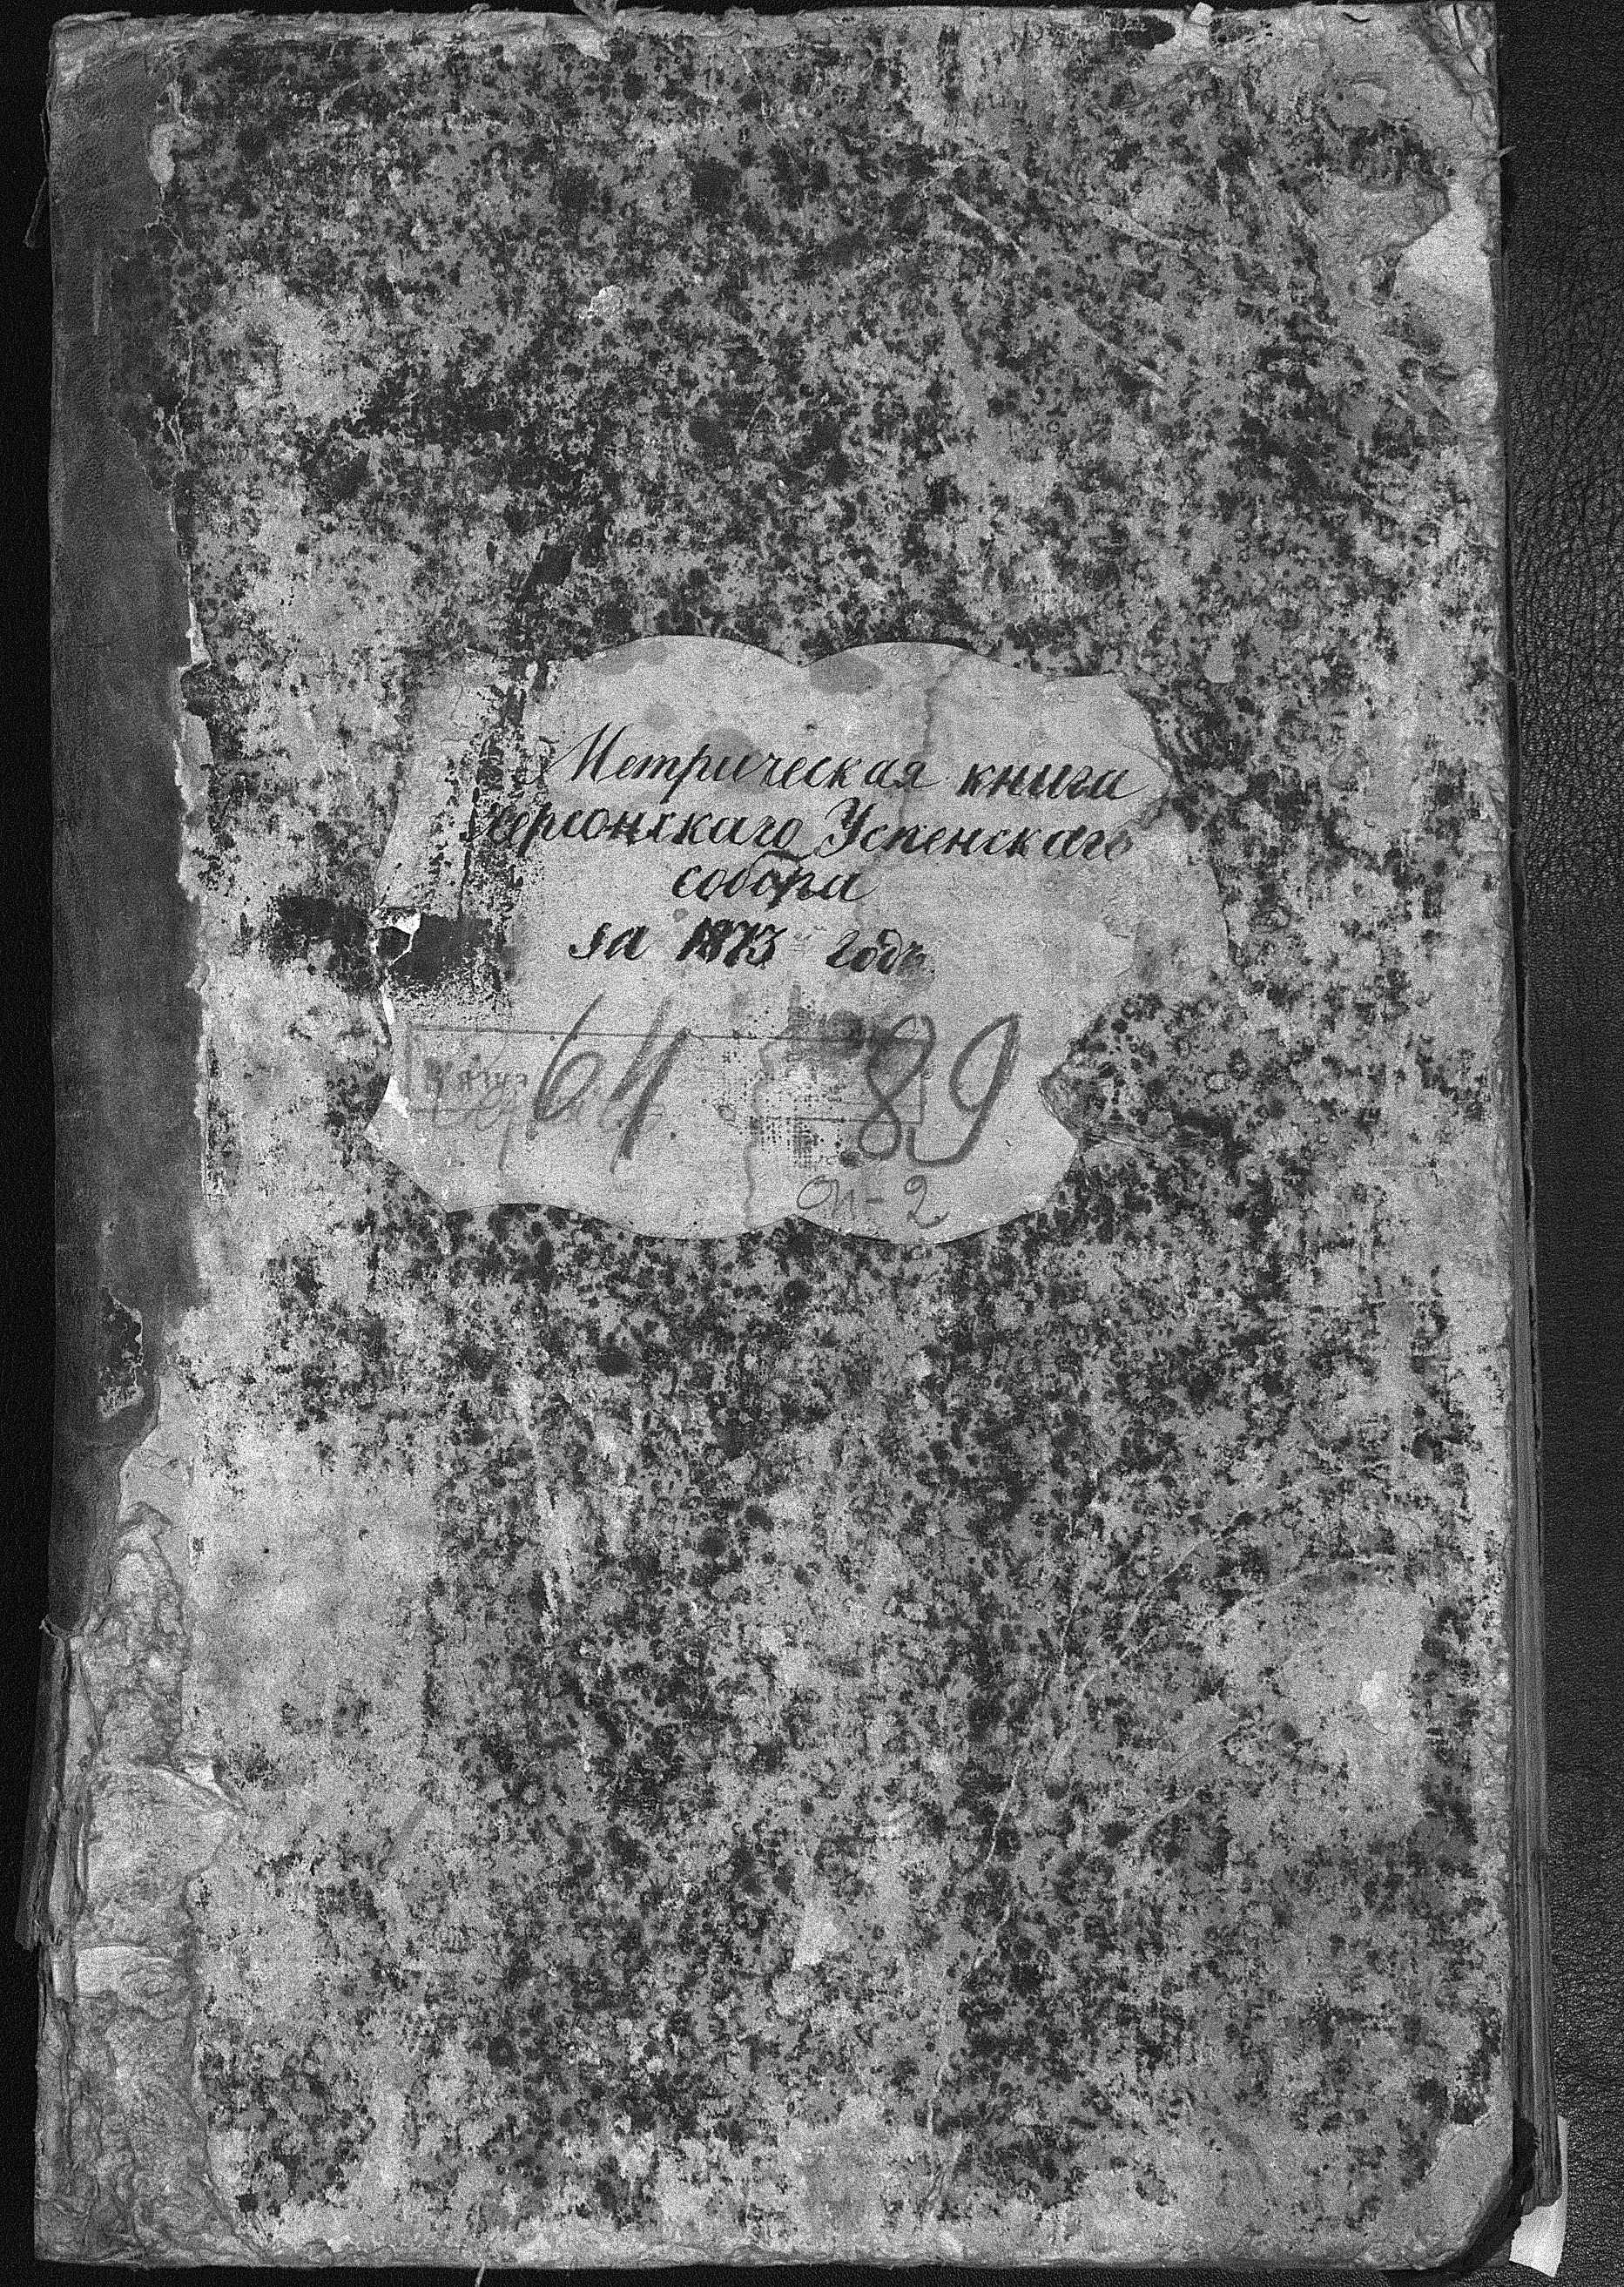 Метрическая книга
Херсонскаго Успенскаго
собора
за 1873 годъ
64 89
оп-2